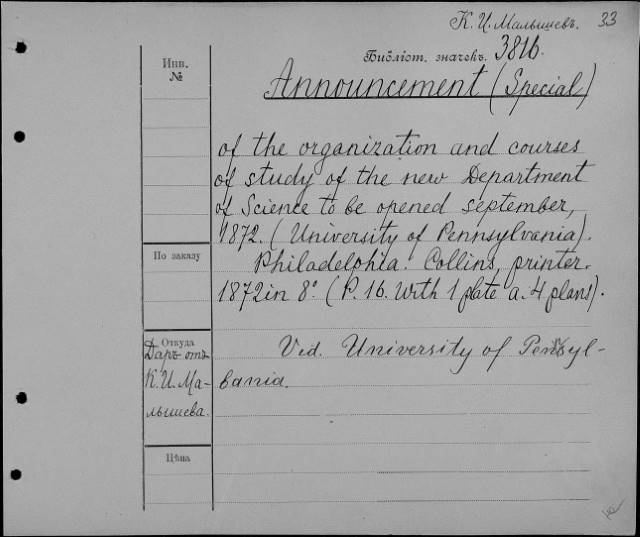 К. И. Малышевъ. 33
Библіот. значекъ. 3816.
Инв.
№
Announcement (Special)
of the organization and courses
of study of the new Department
of Science to be opened september,
1872. (University of Pennsylvania).
По заказу
Philadelphia. Collins, printer.
1872 in 8°. (P. 16. With 1 plate a. 4 plans).
Откуда
Даръ отъ
К. И. Ма-
лышева.
Vid. University of Pensyl-
vania.
Цѣна